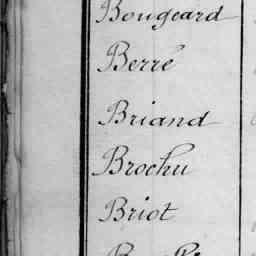 Bougeard
Berré
Briand
Brochu
Briot